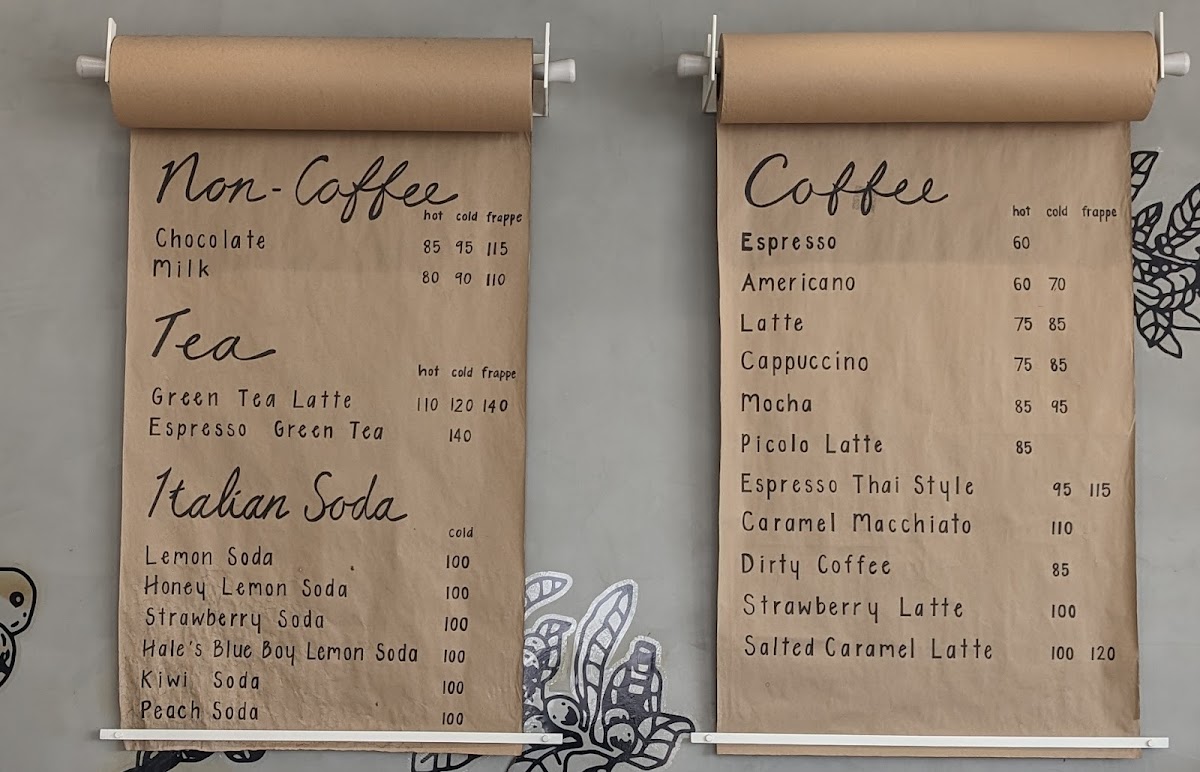 Non-Coffee
hot cold frappe
Chocolate 85 95 115
Milk 80 90 110
Tea
hot cold frappe
Green Tea Latte 110 120 140
Espresso Green Tea 140
Italian Soda
cold
Lemon Soda 100
Honey Lemon Soda 100
Strawberry Soda 100
Hale's Blue Boy Lemon Soda 100
Kiwi Soda 100
Peach Soda 100
Coffee
hot cold frappe
Espresso 60
Americano 60 70
Latte 75 85
Cappuccino 75 85
Mocha 85 95
Picolo Latte 85
Espresso Thai Style 95 115
Caramel Macchiato 110
Dirty Coffee 85
Strawberry Latte 100
Salted Caramel Latte 100 120